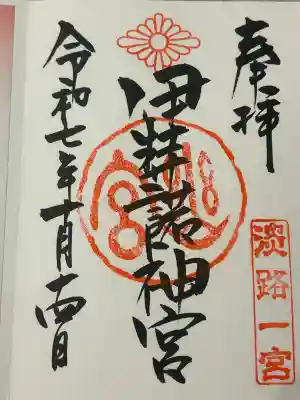 奉拝
淡路一宮
伊弉諾神宮
令和七年十月十四日